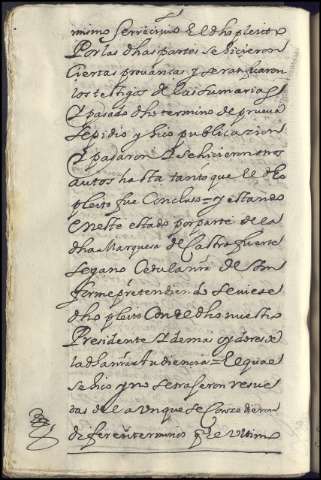 mino se rreciuio El dho pleito
Por las dhas partes se hicieron
Ciertas prouanças y se ratificaron
los testigos de las sumarias
Y pasado dho termino de prueua
se pidio y hiço publicacion
Y pasaron Y se hicieron otros
autos hasta tanto que le dho
pleito fue Concluso = y estando
en este estado por parte de la
dha Marquesa de Castrofuerte
se gano Cedula nra de Con
forme pretendiendo se uiese
dho pleito Con el dho nuestro
Presidente Y demas oydores de
la dha nra Audiencia = la qual
se hiço y no se traxeron
das de la Unque se Concedieron
diferentes terminos y el Ultimo